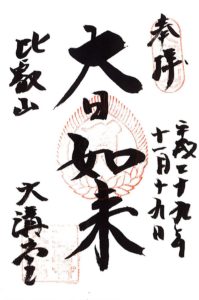 奉拝
平成二十九年
十一月十九日
大日如来
比叡山
大講堂